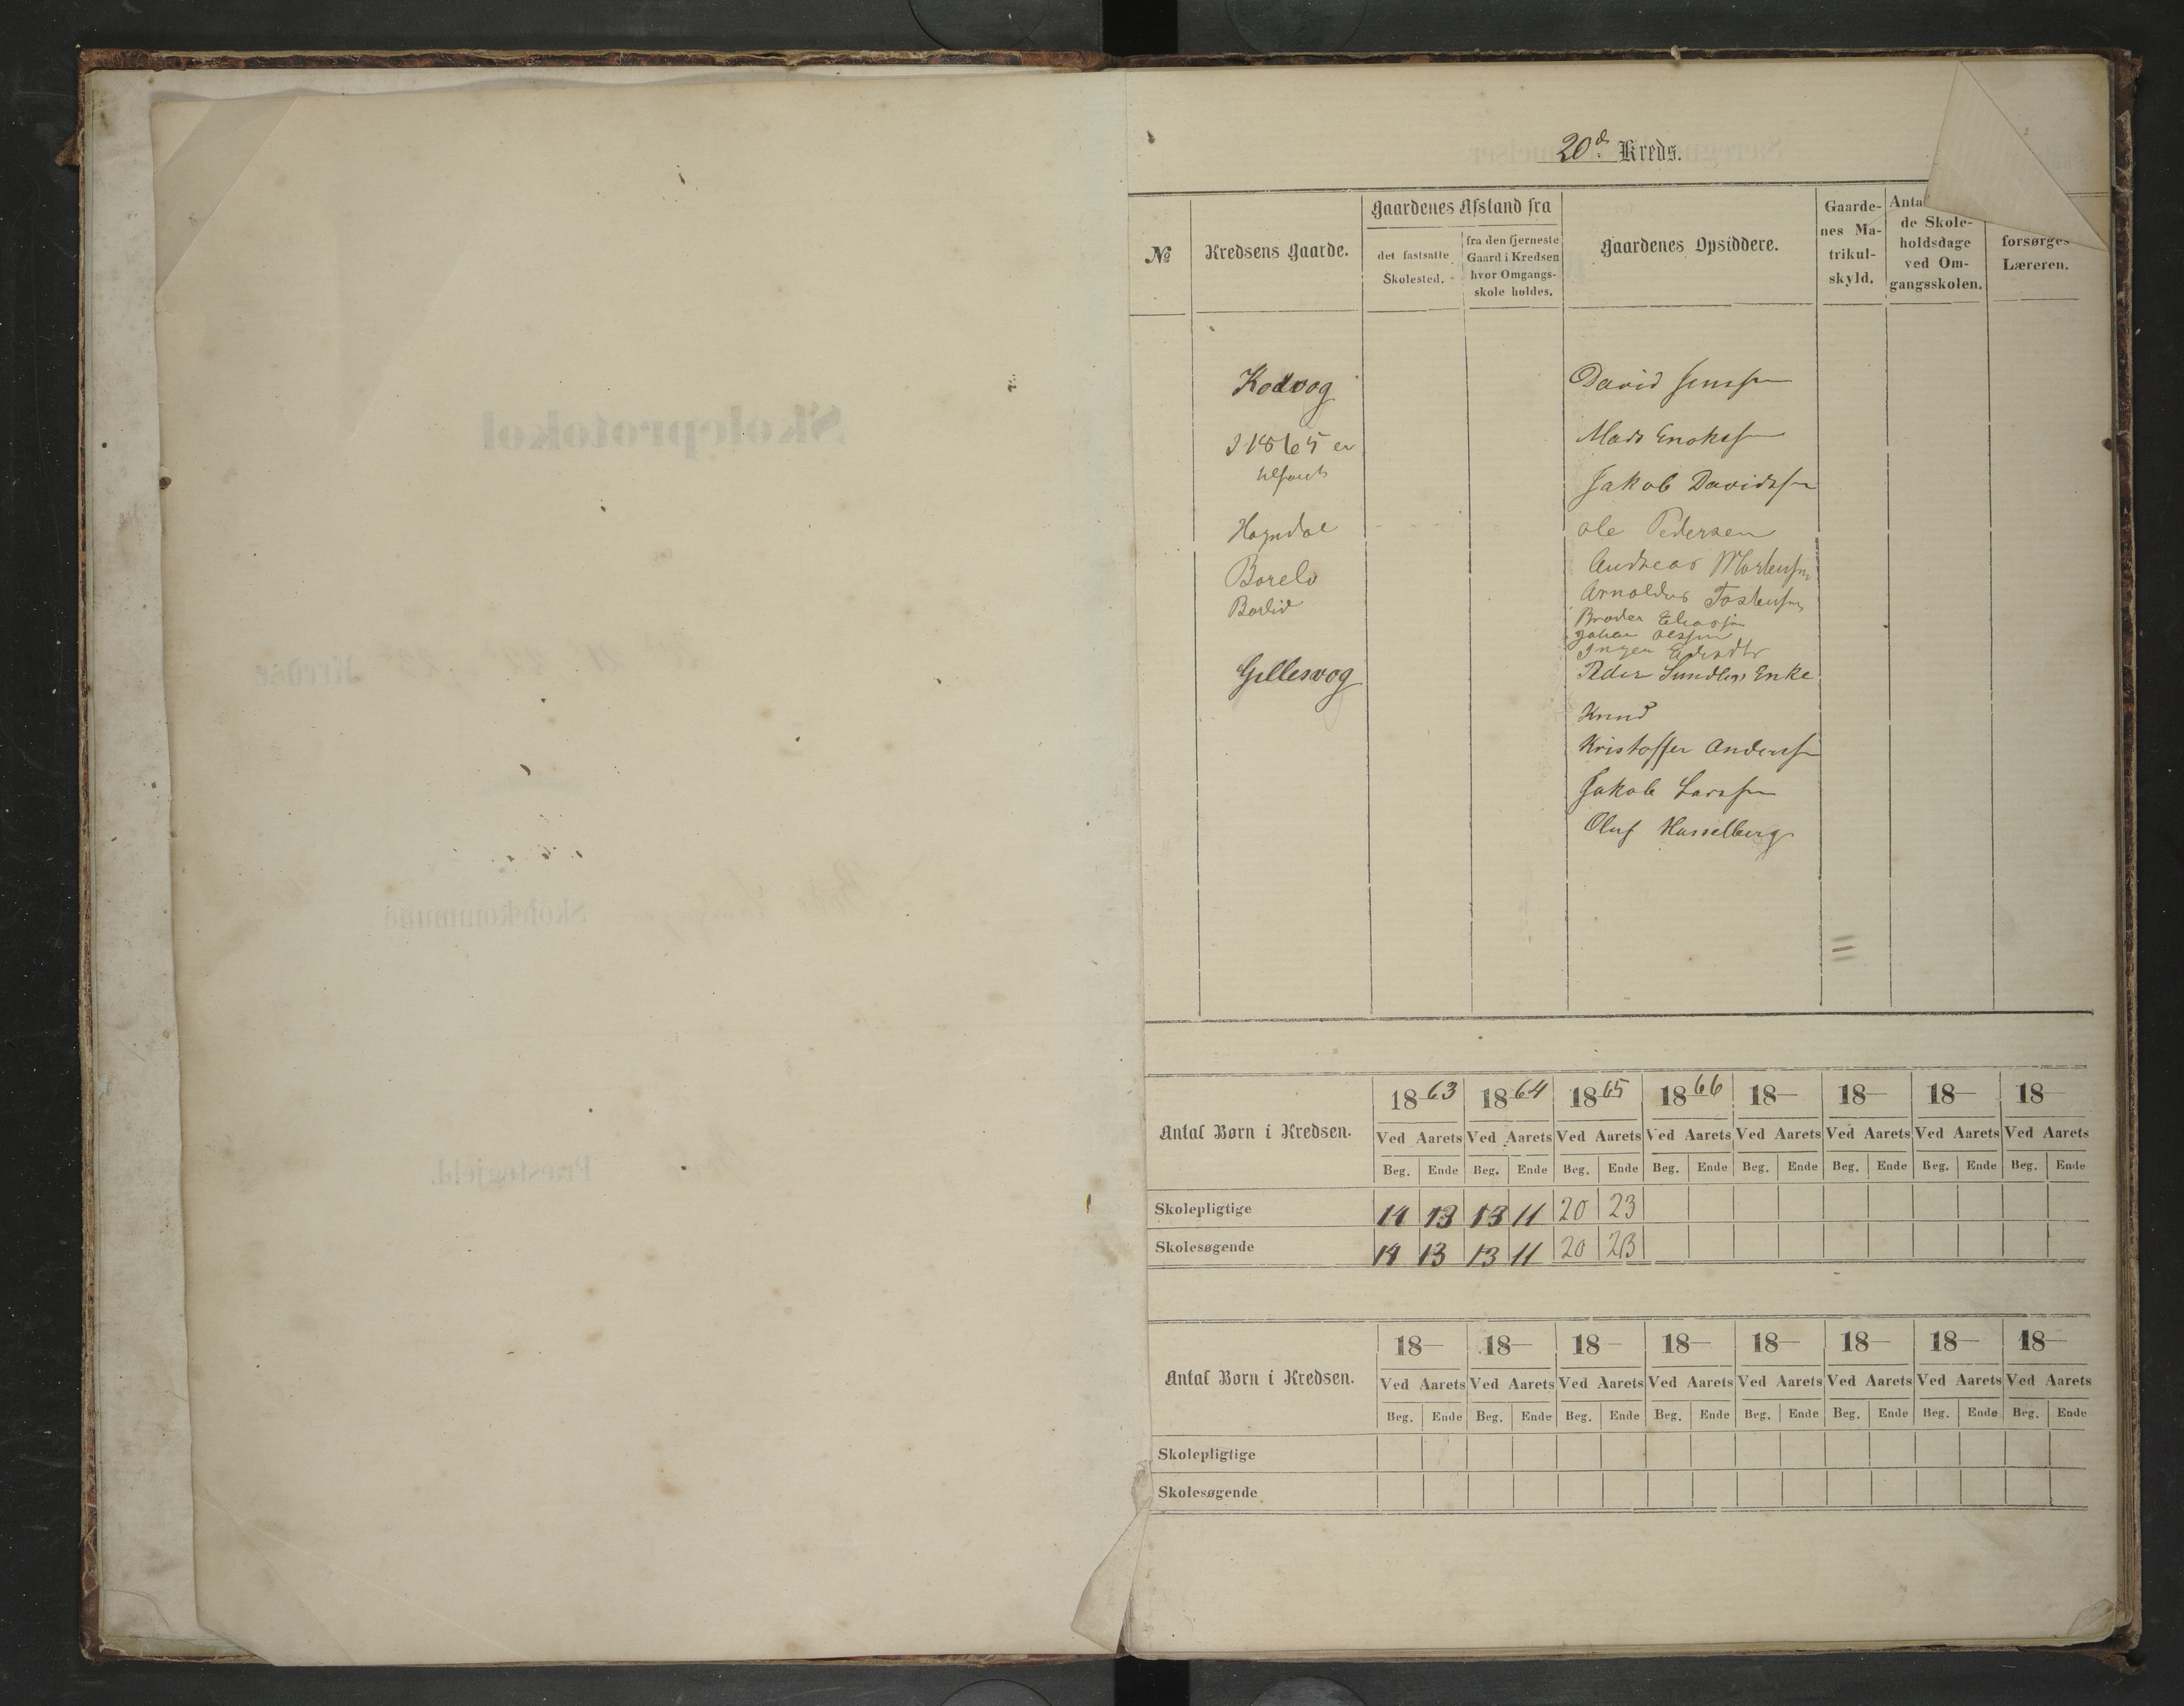 20de Kreds.
№
Kredsens Gaarde.
Gaardenes Afstand fra
det fastsatte Skolested.
fra den fjerneste Gaard i Kredsen hvor Omgangs-skole holdes.
Gaardenes Opsiddere.
Gaarde-
nes Ma-
trikul-
skyld.
de Skole-
holdsdage
ved Om-
gangsskolen.
forsørges
Læreren.
Kodvog
David Jenssen
I 1865 er
Mads Enokssen
Jakob Davidssen
Hogndal
Ole Pedersen
Andreas Mortensen
Borelv
Arnoldus Tostensen
Borlid
Broder Eliassen
Johan Olssen
Gillesvog
Peder Enke
Knud
Kristoffer Anderssen
Jakob Larssen
Oluf Hasselberg
Antal Børn i Kredsen.
1863 1864 1865 1866 18— 18— 18— 18—
Ved Aarets Ved Aarets Ved Aarets Ved Aarets Ved Aarets Ved Aarets Ved Aarets Ved Aarets
Beg. Ende Beg. Ende Beg. Ende Beg. Ende Beg. Ende Beg. Ende Beg. Ende Beg. Ende
Skolepligtige 14 13 13 11 20 23
Skolesøgende 14 13 13 11 20 23
Antal Børn i Kredsen.
18— 18— 18— 18— 18— 18— 18— 18—
Ved Aarets Ved Aarets Ved Aarets Ved Aarets Ved Aarets Ved Aarets Ved Aarets Ved Aarets
Beg. Ende Beg. Ende Beg. Ende Beg. Ende Beg. Ende Beg. Ende Beg. Ende Beg. Ende
Skolepligtige
Skolesøgende